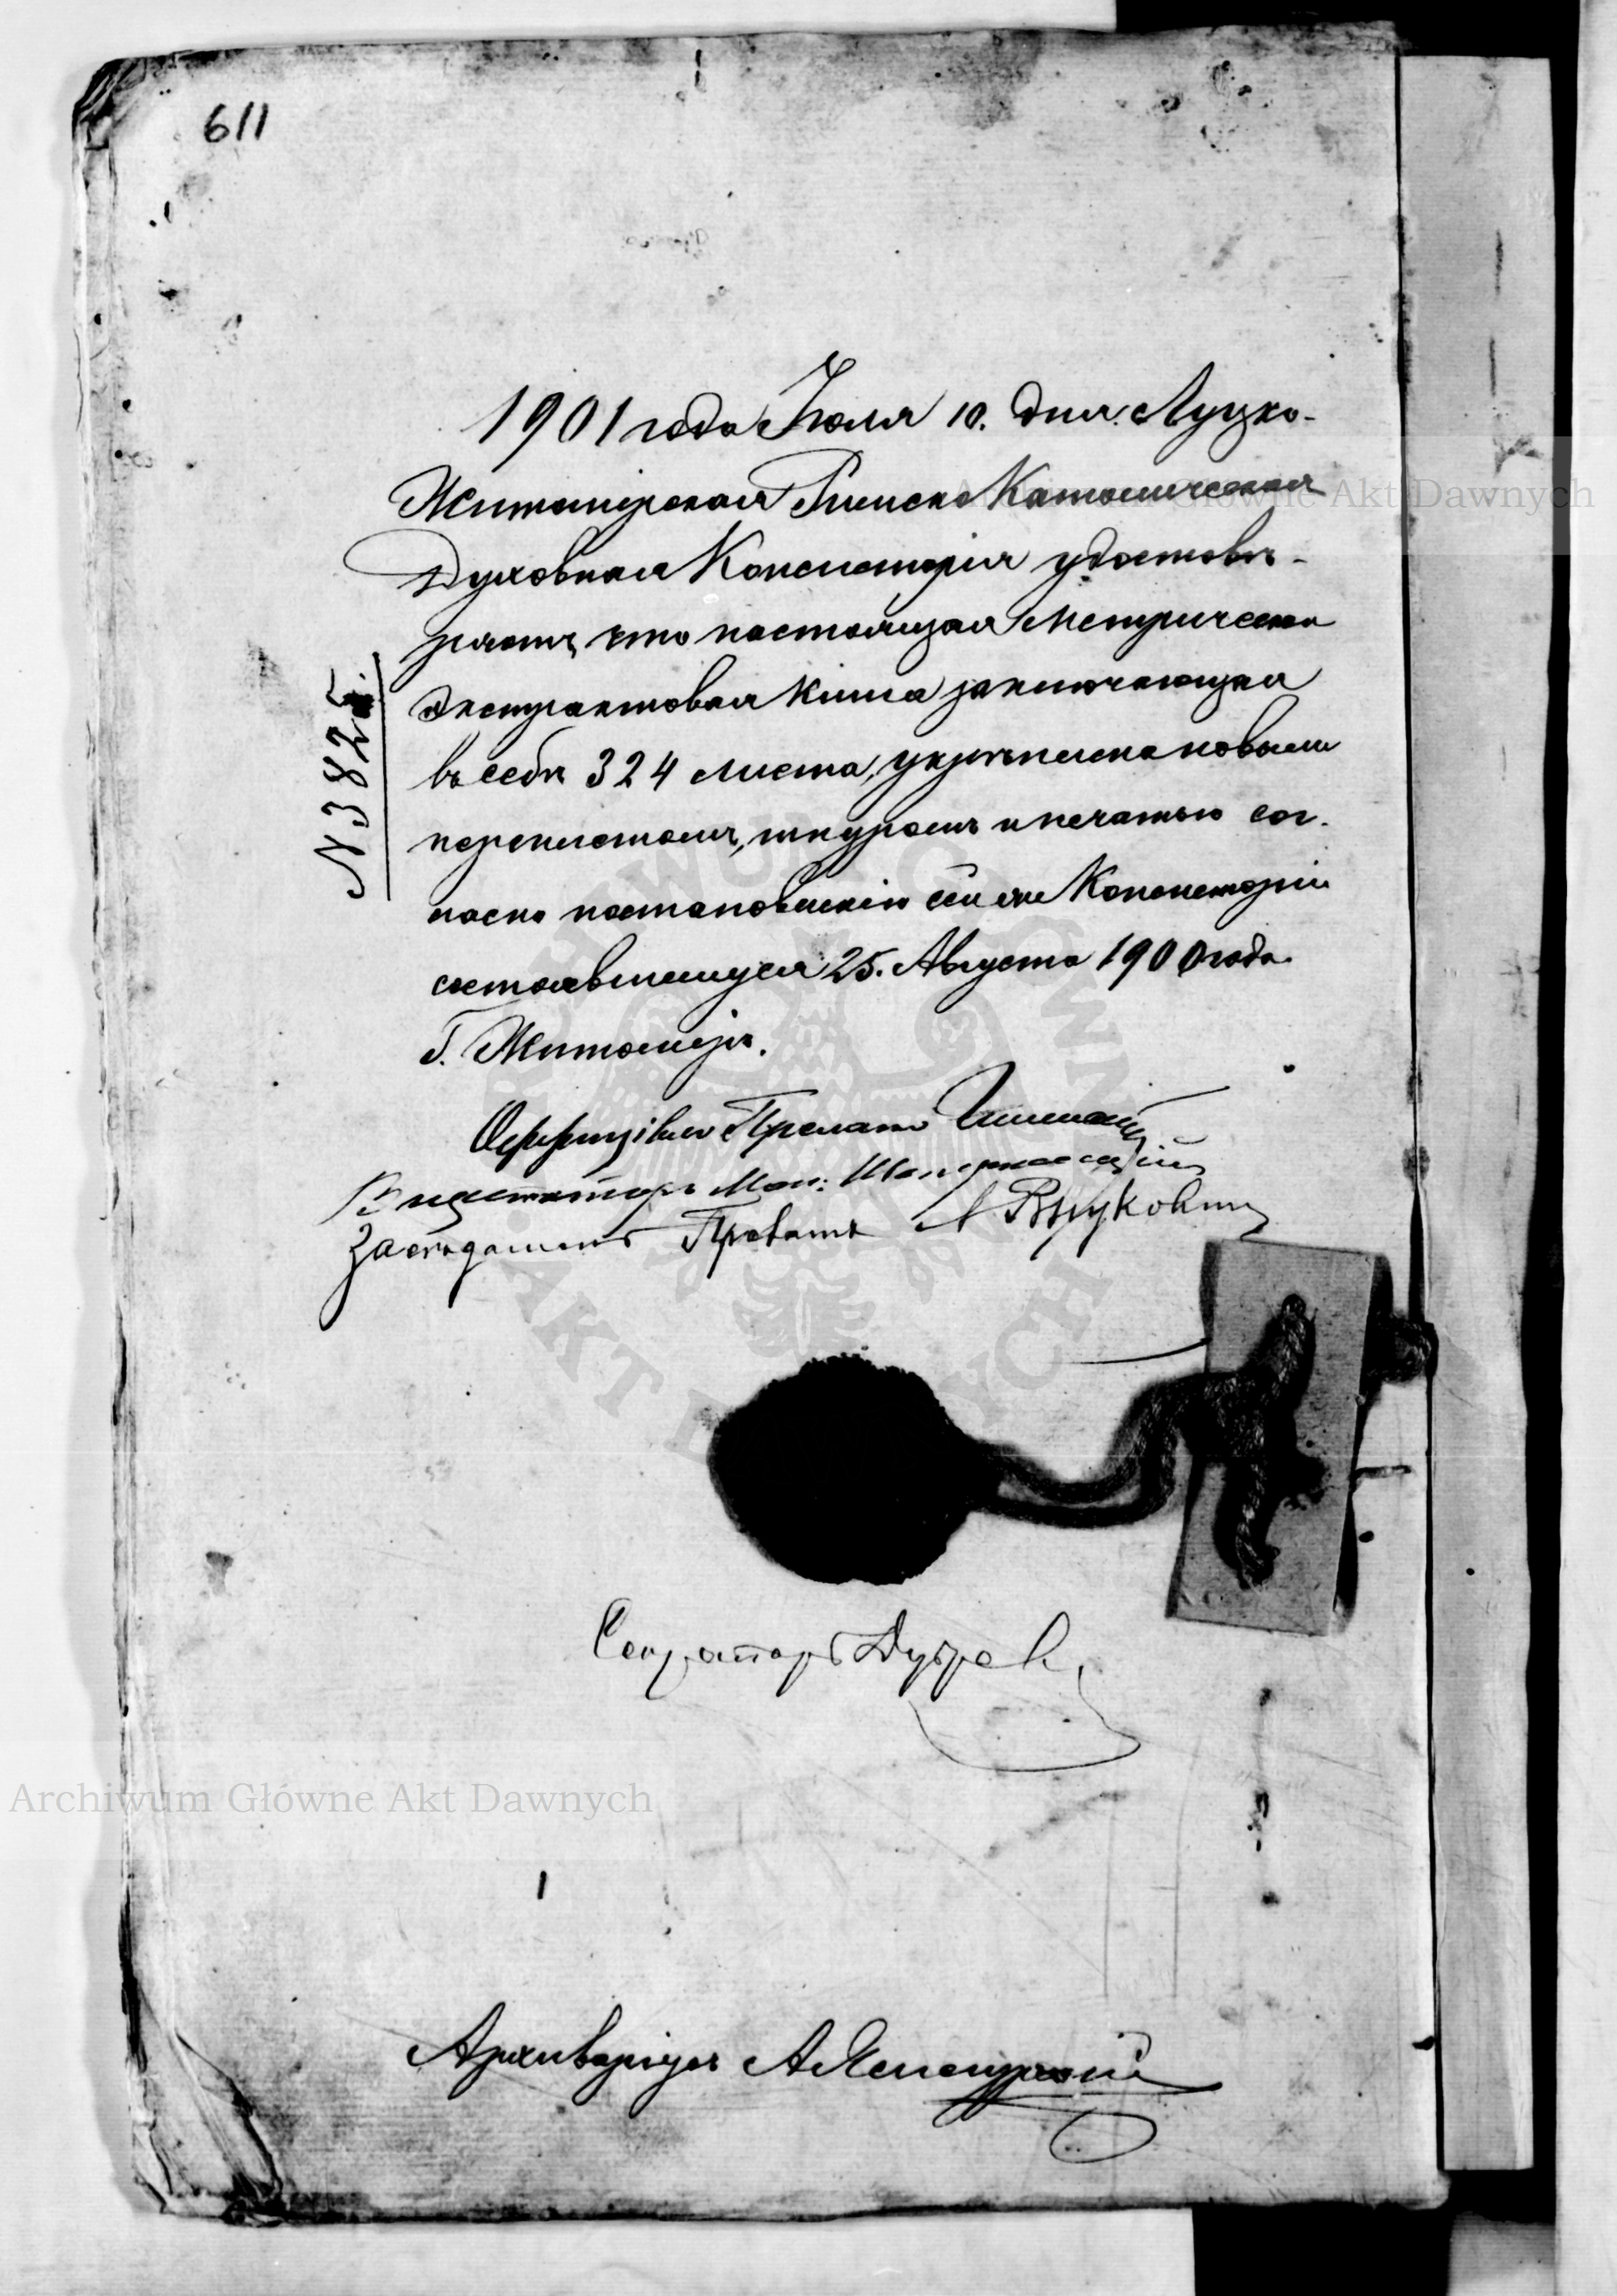 611
1901 года Іюля 10. дня. Луцко-
Житомірская Римско Католическая
Духовная Консисторія удостовѣ-
ряетъ, что настоящая Метрическая
экстрактовая Книга заключающая
въ себѣ 324 листа, укрѣплена новымъ
переплетомъ, шнуромъ и печатью сог-
ласно постановленію сей же Консисторіи
состоявшемуся 25. Августа 1900 года.
Г. Житоміръ.
N 3825.
Оффиціалъ Прелатъ
Визитаторъ
Засѣдатель Прелатъ
Секретарь
Архиваріусъ А
Archiwum Główne Akt Dawnych
Archiwum Główne Akt Dawnych
ARCHIWUM GŁÓWNE AKT DAWNYCH